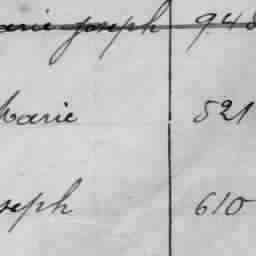 arie Joseph 948
Marie 521
seph 610